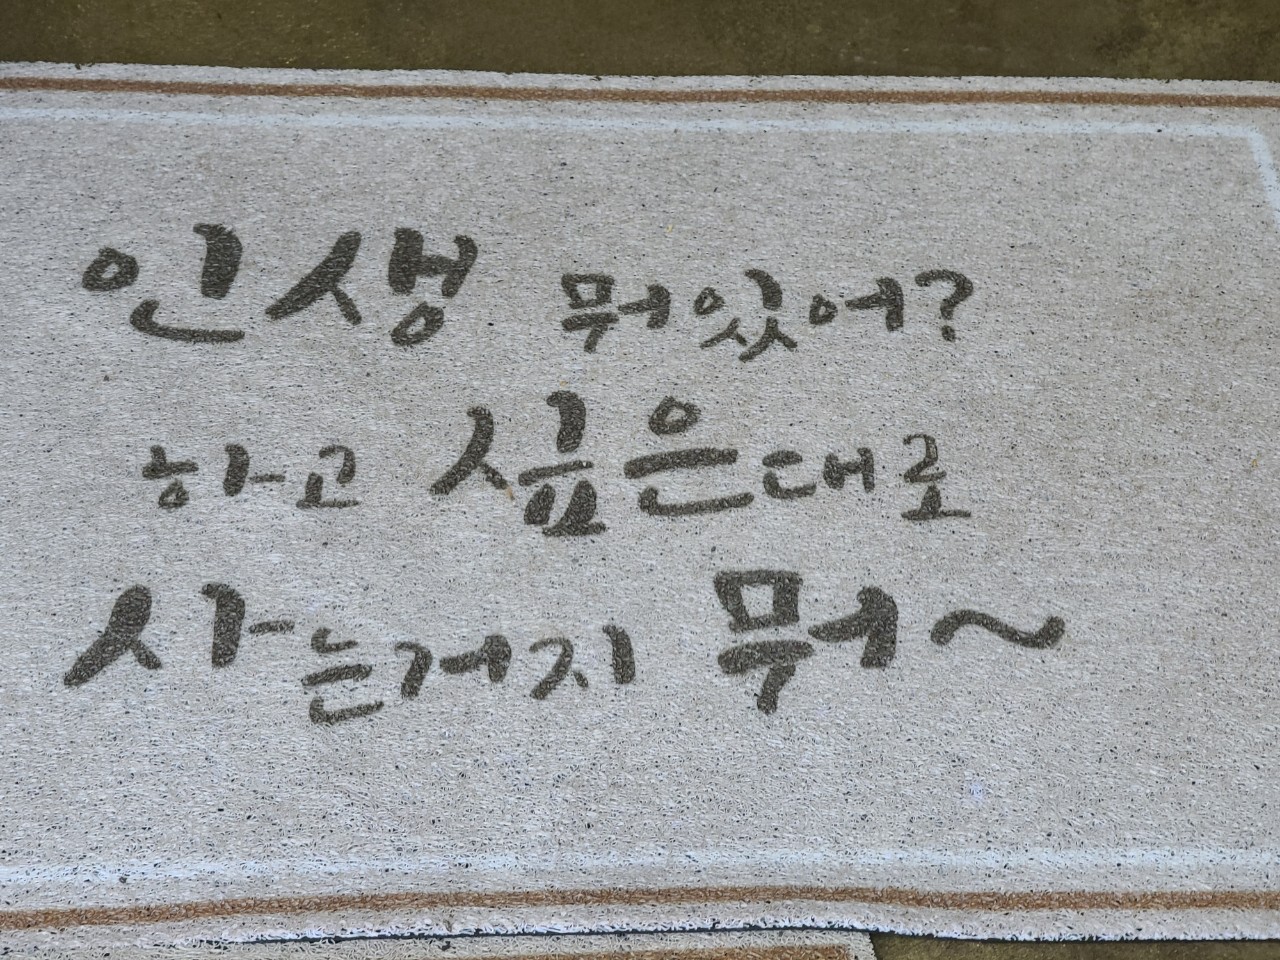 인생 뭐있어?
하고 싶은대로
사는거지 뭐~